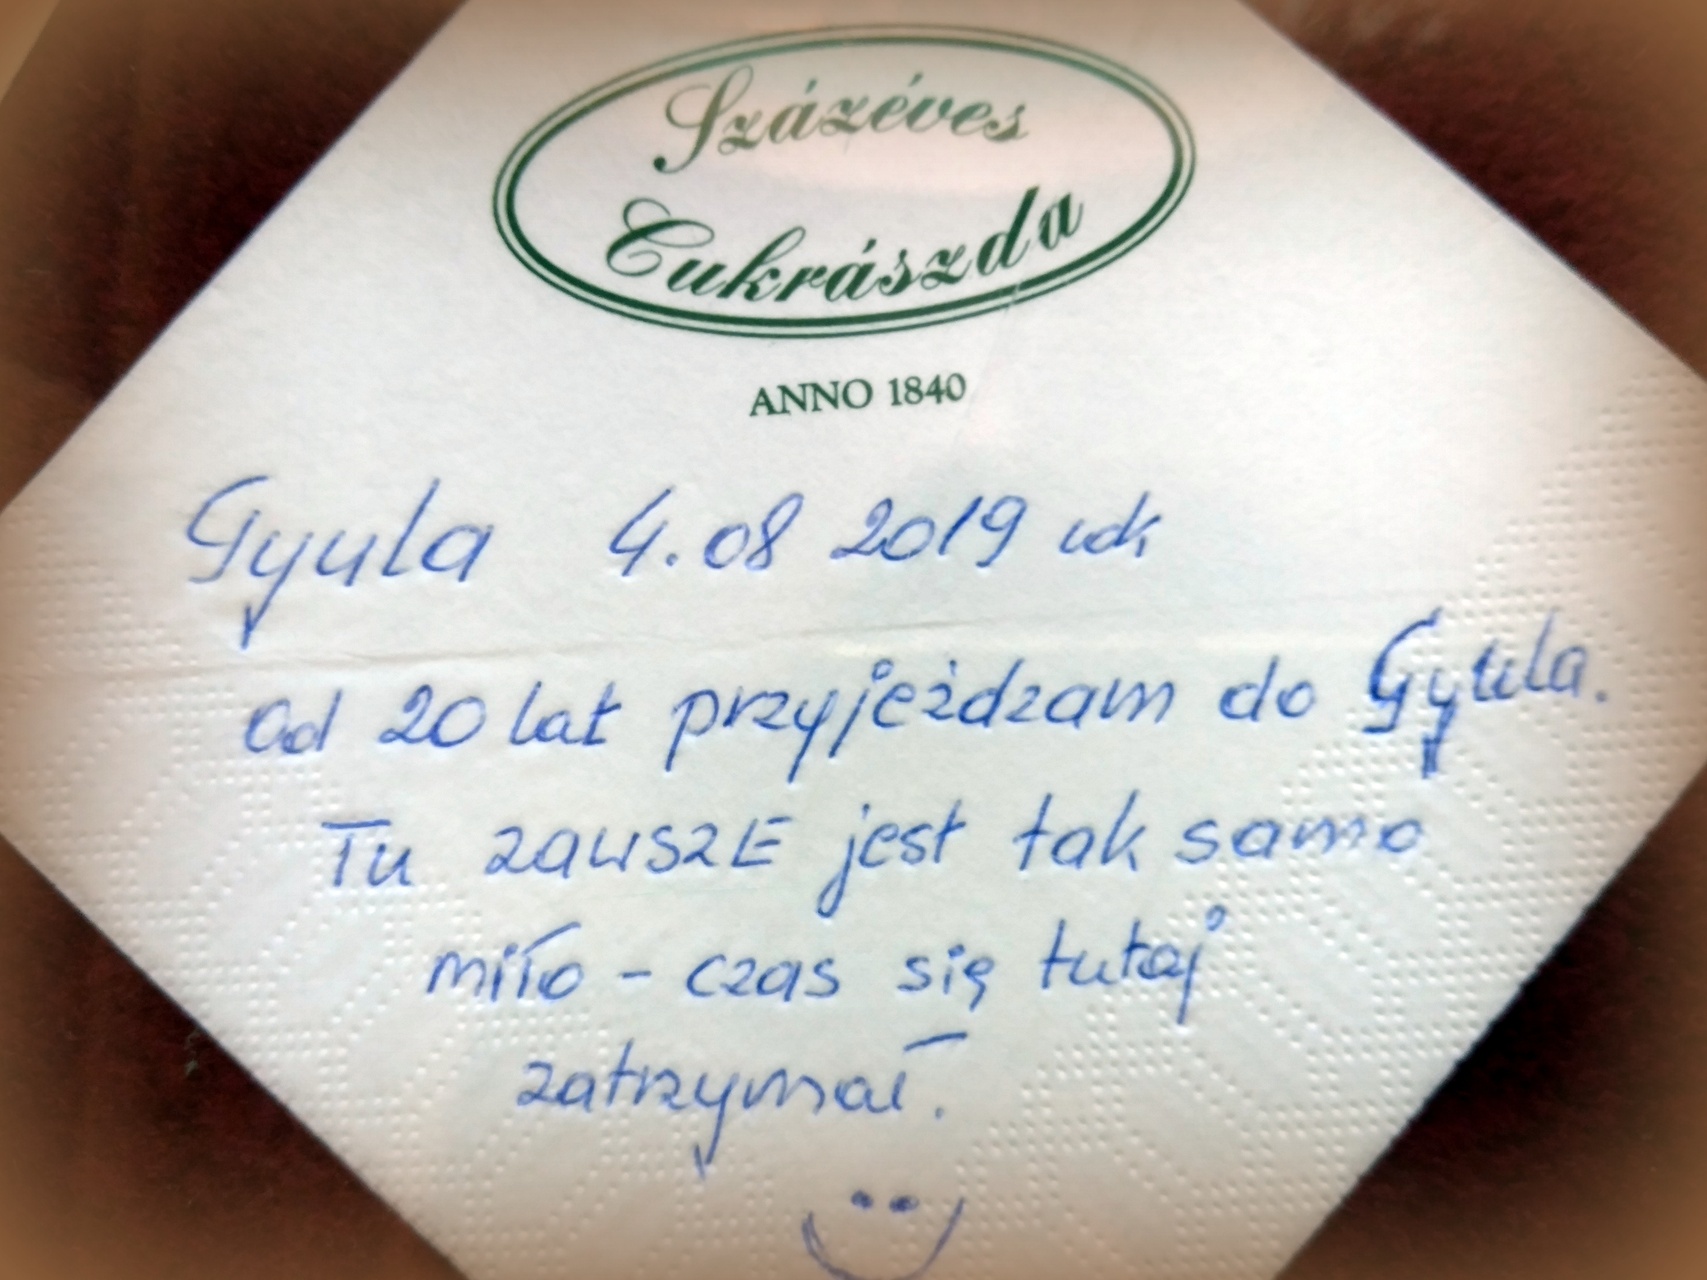 Százéves
Cukrászda
ANNO 1840
Gyula 4.08 2019 rok
od 20 lat przyjeżdzam do Gyula.
Tu zawszE jest tak samo
miło - czas się tutaj
zatrzymał.